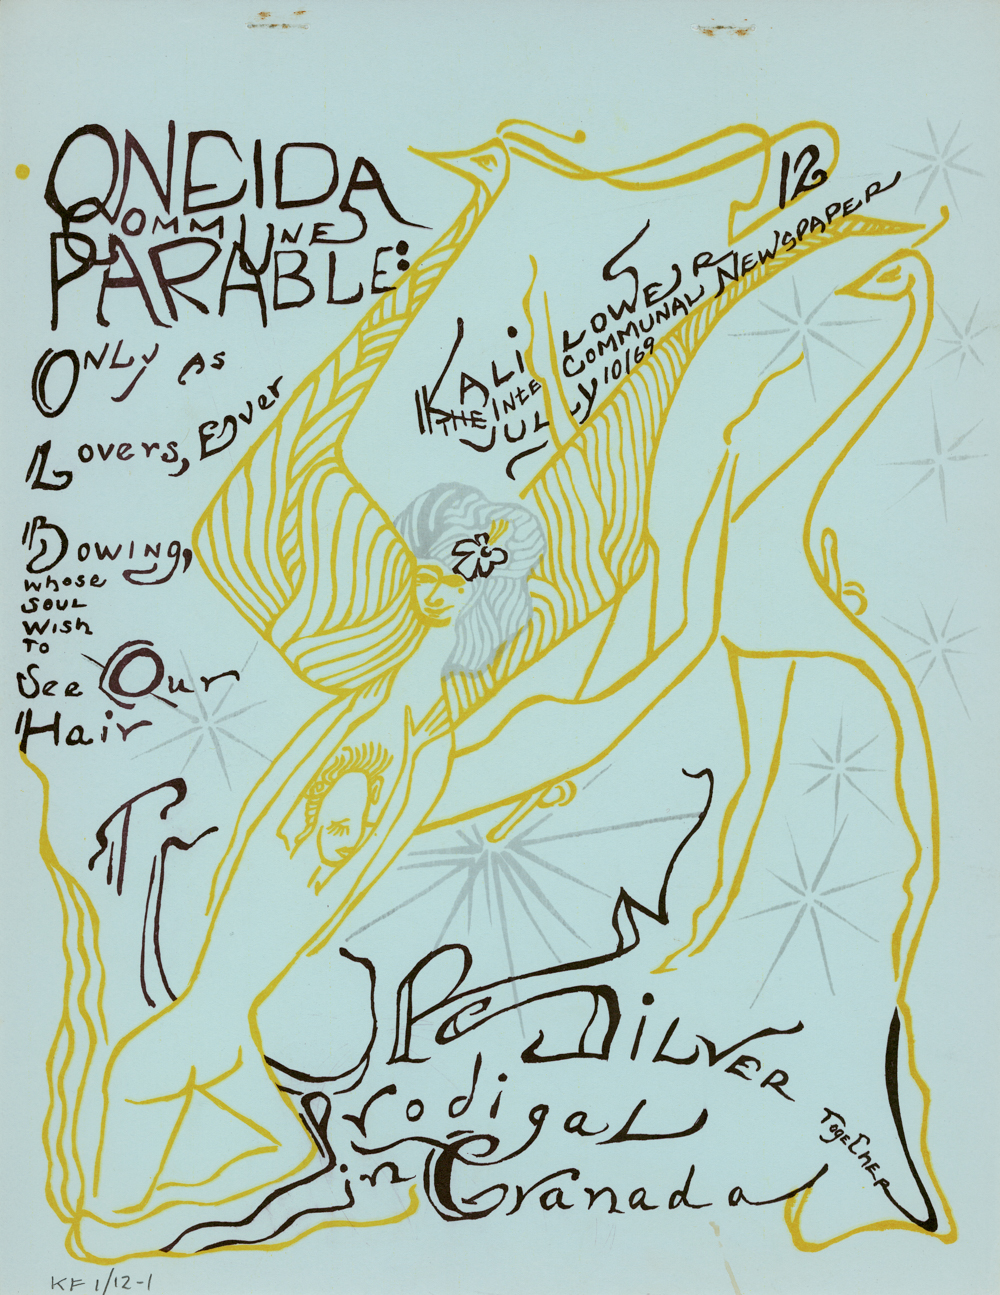 ONEIDA
COMMUNES
PARABLE:
ONLY AS
Lovers, Ever
Bowing,
whose
SOUL
Wish
To
See Our
Hair
12
KALI FLOWER
THE INTER COMMUNAL NEWSPAPER
JULY 10/69
SiLVER
Prodigal
in Granada
TogeTHER
KF 1/12-1